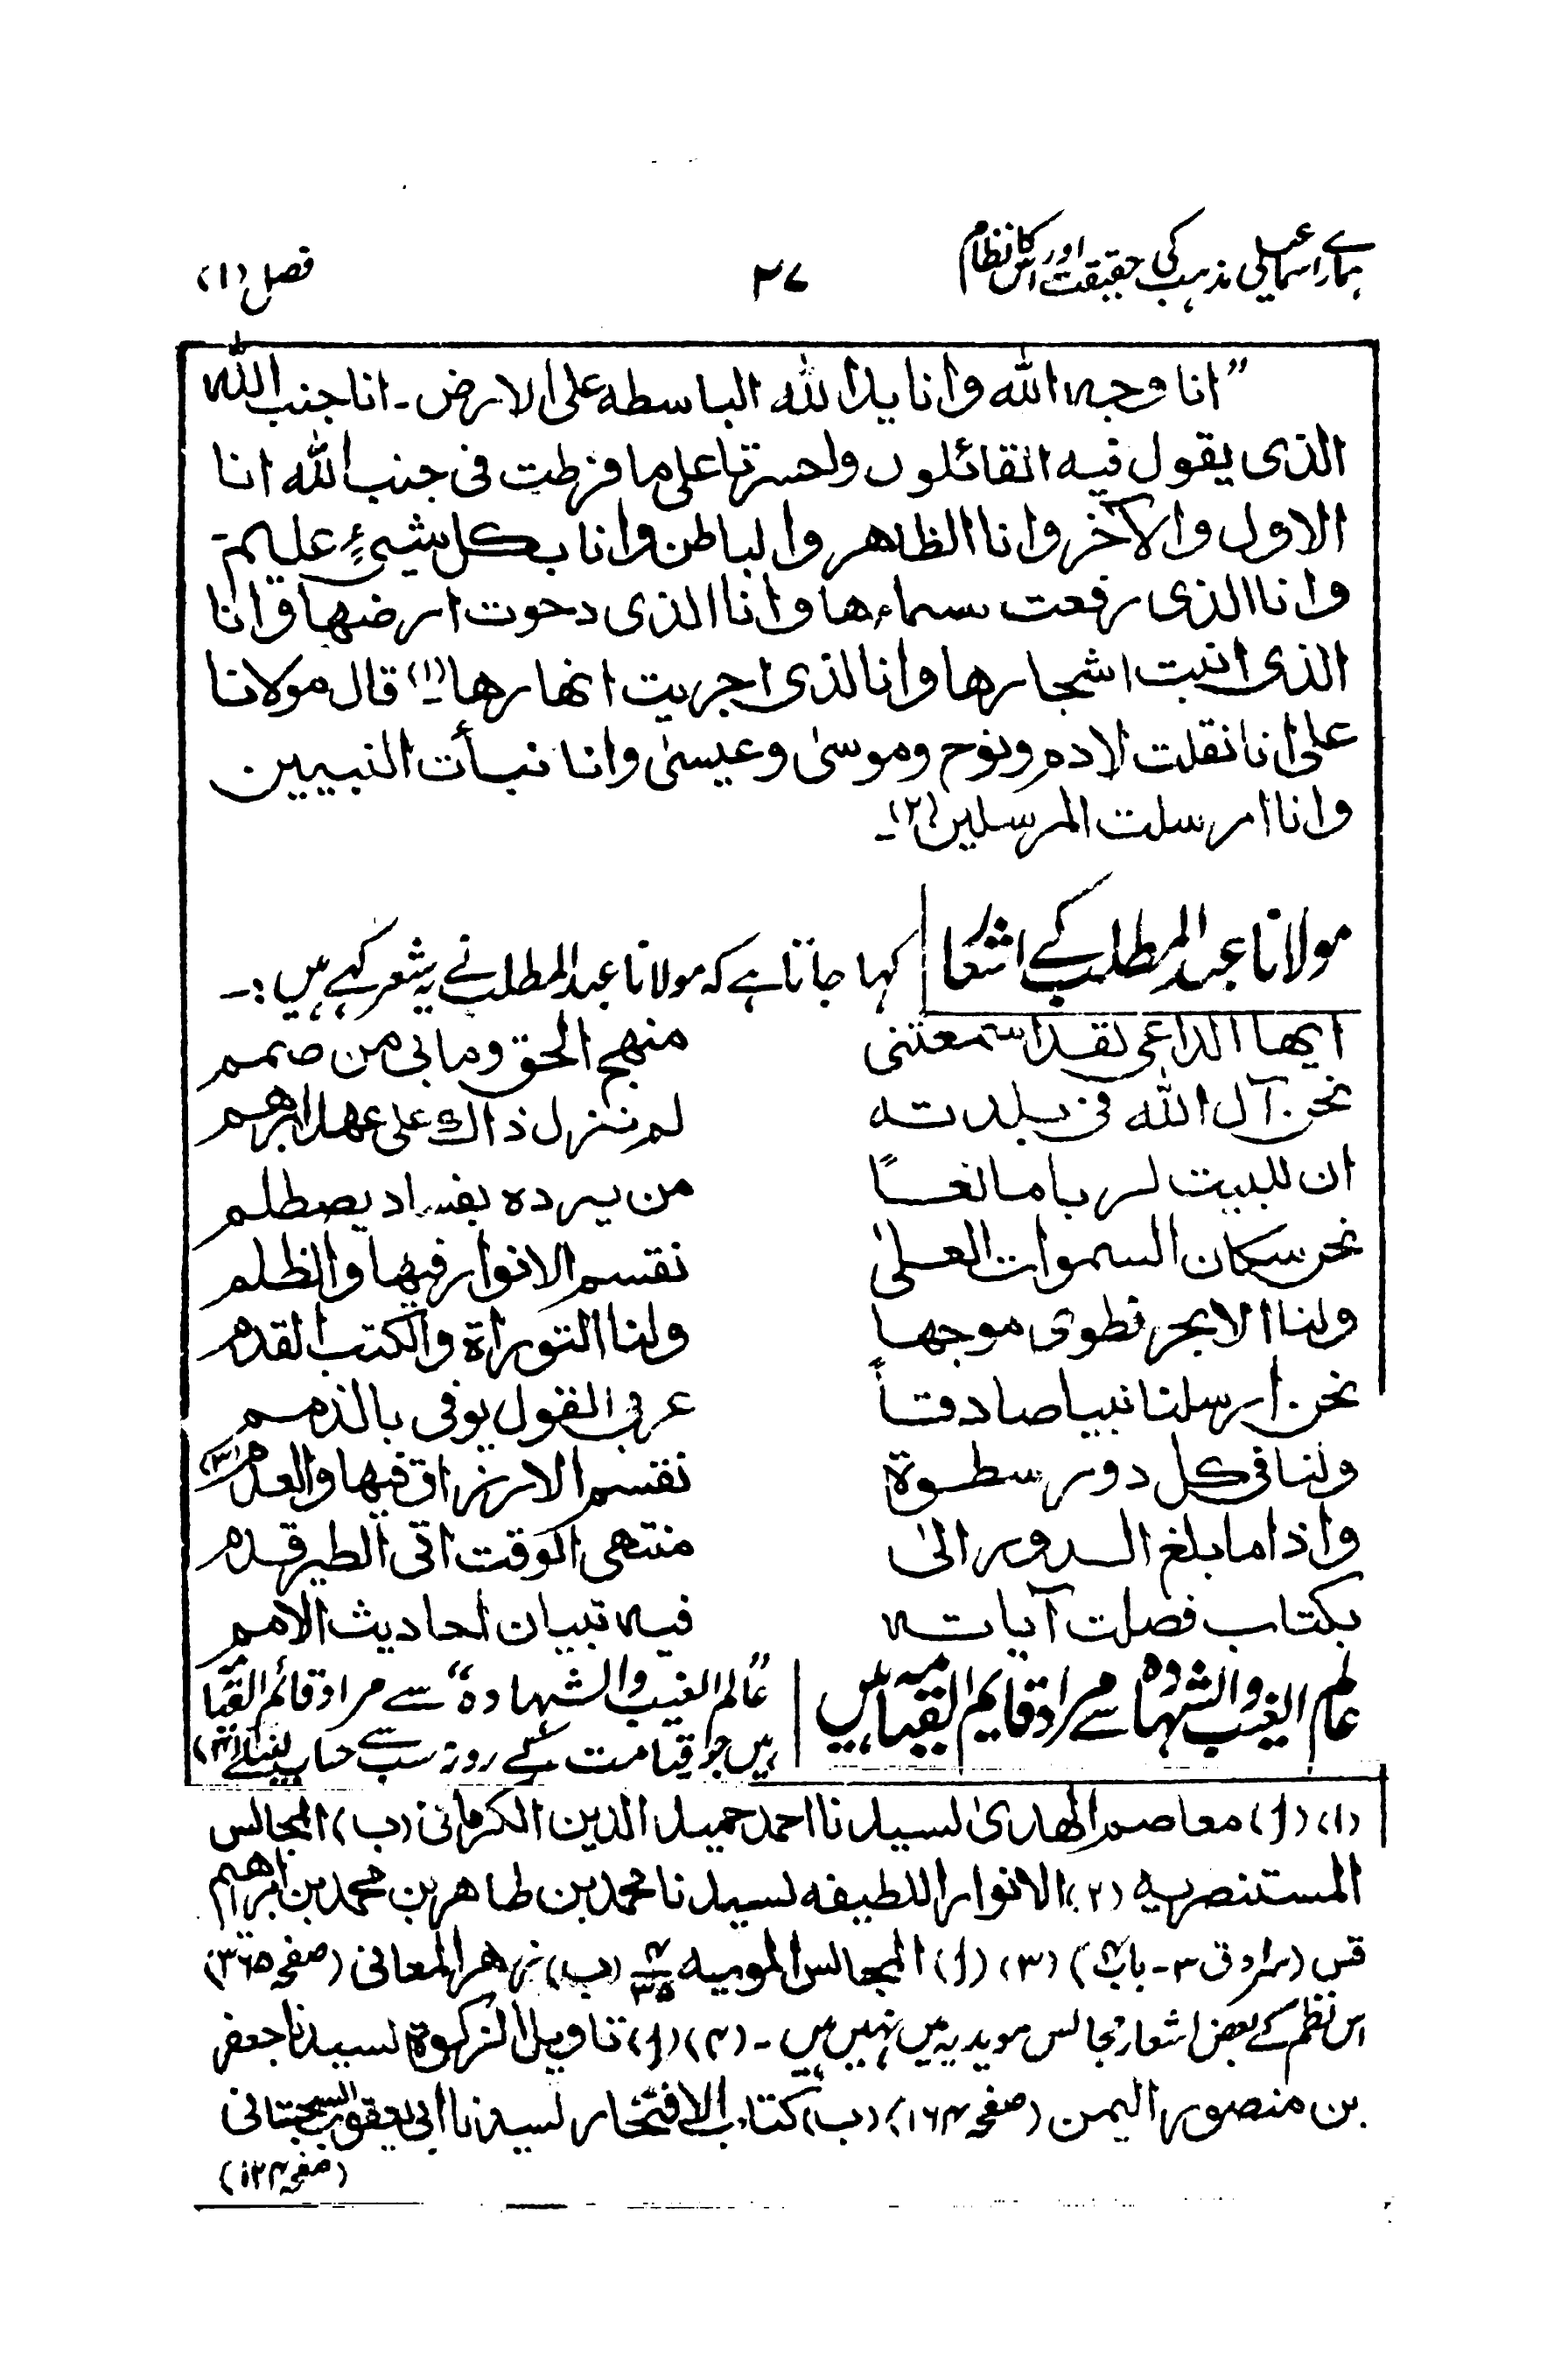 ہمارے اسماعیلی مذہب کی حقیقت اور اس کا نظام ۲۷ فصل (۱)
”انا وجہ اللہ وانا ید اللہ الباسطہ علی الارض ۔ انا جنب اللہ
الذی یقول فیہ القائلون واحسرتھا علی ما فرطت فی جنب اللہ انا
الاول والآخر وانا الظاھر والباطن وانا بکل شیئٍ علیم ۔
وانا الذی رفعت سماءھا وانا الذی دحوت ارضھا وانا
الذی انبت اشجارھا وانا لذی اجریت انھارھا (۱) قال مولانا
علی انا نقلت لادم ونوح وموسیٰ وعیسیٰ وانا نبأت النبیین
وانا ارسلت المرسلین (۲)۔
مولانا عبد المطلب کے اشعار کہا جاتا ہے کہ مولانا عبد المطلب نے یہ شعر کہے ہیں :۔
ایھا الداعی لقد استمعتنی منھج الحق وما بی من صمم
نحن آل اللہ فی بلدتہ لم ننزل ذاک علی عھد ابرھم
ان للبیت لربا مانعاً من یردہ بفساد یصطلم
نحن سکان السموات العلیٰ نقسم الانوار فیھا والظلم
ولنا الابحر نطوی موجھا ولنا التوراة والکتب القدم
نحن ارسلنا نبیا صادقاً عربی القول یوفی بالذمم
ولنا فی کل دور سطوة نقسم الارزاق فیھا والعدم (۳)
واذا ما بلغ الدور الیٰ منتھی الوقت اتی الطیر قدم
بکتاب فصلت آیاتہ فیہ تبیان احادیث الامم
عالم الغیب والشہادہ سے مراد قایم القیامہ ہیں ”عالم الغیب والشہادہ“ سے مراد قائم القیامہ
ہیں جو قیامت کے روز سب سے حساب لینگے (۴)
(۱) (ا) معاصم الھدیٰ لسیدنا احمد حمید الدین الکرمانی (ب) المجالس
المستنصریہ (۲) الانوار اللطیفہ لسیدنا محمد بن طاھر بن محمد بن ابراھیم
(سرادق ۳ ۔ باب) (۳) (ا) المجالس المویدیہ (ب) زھر المعانی (صفحہ ۳۶۵)
اس نظم کے بعض اشعار مجالس مویدیہ میں نہیں ہیں ۔ (۴) (ا) تاویل الزکوة لسیدنا جعفر
بن منصور الیمن (صفحہ ۱۶۴) (ب) کتاب الافتخار لسیدنا ابی یعقوب السجستانی
(صفحہ ۱۲۴)